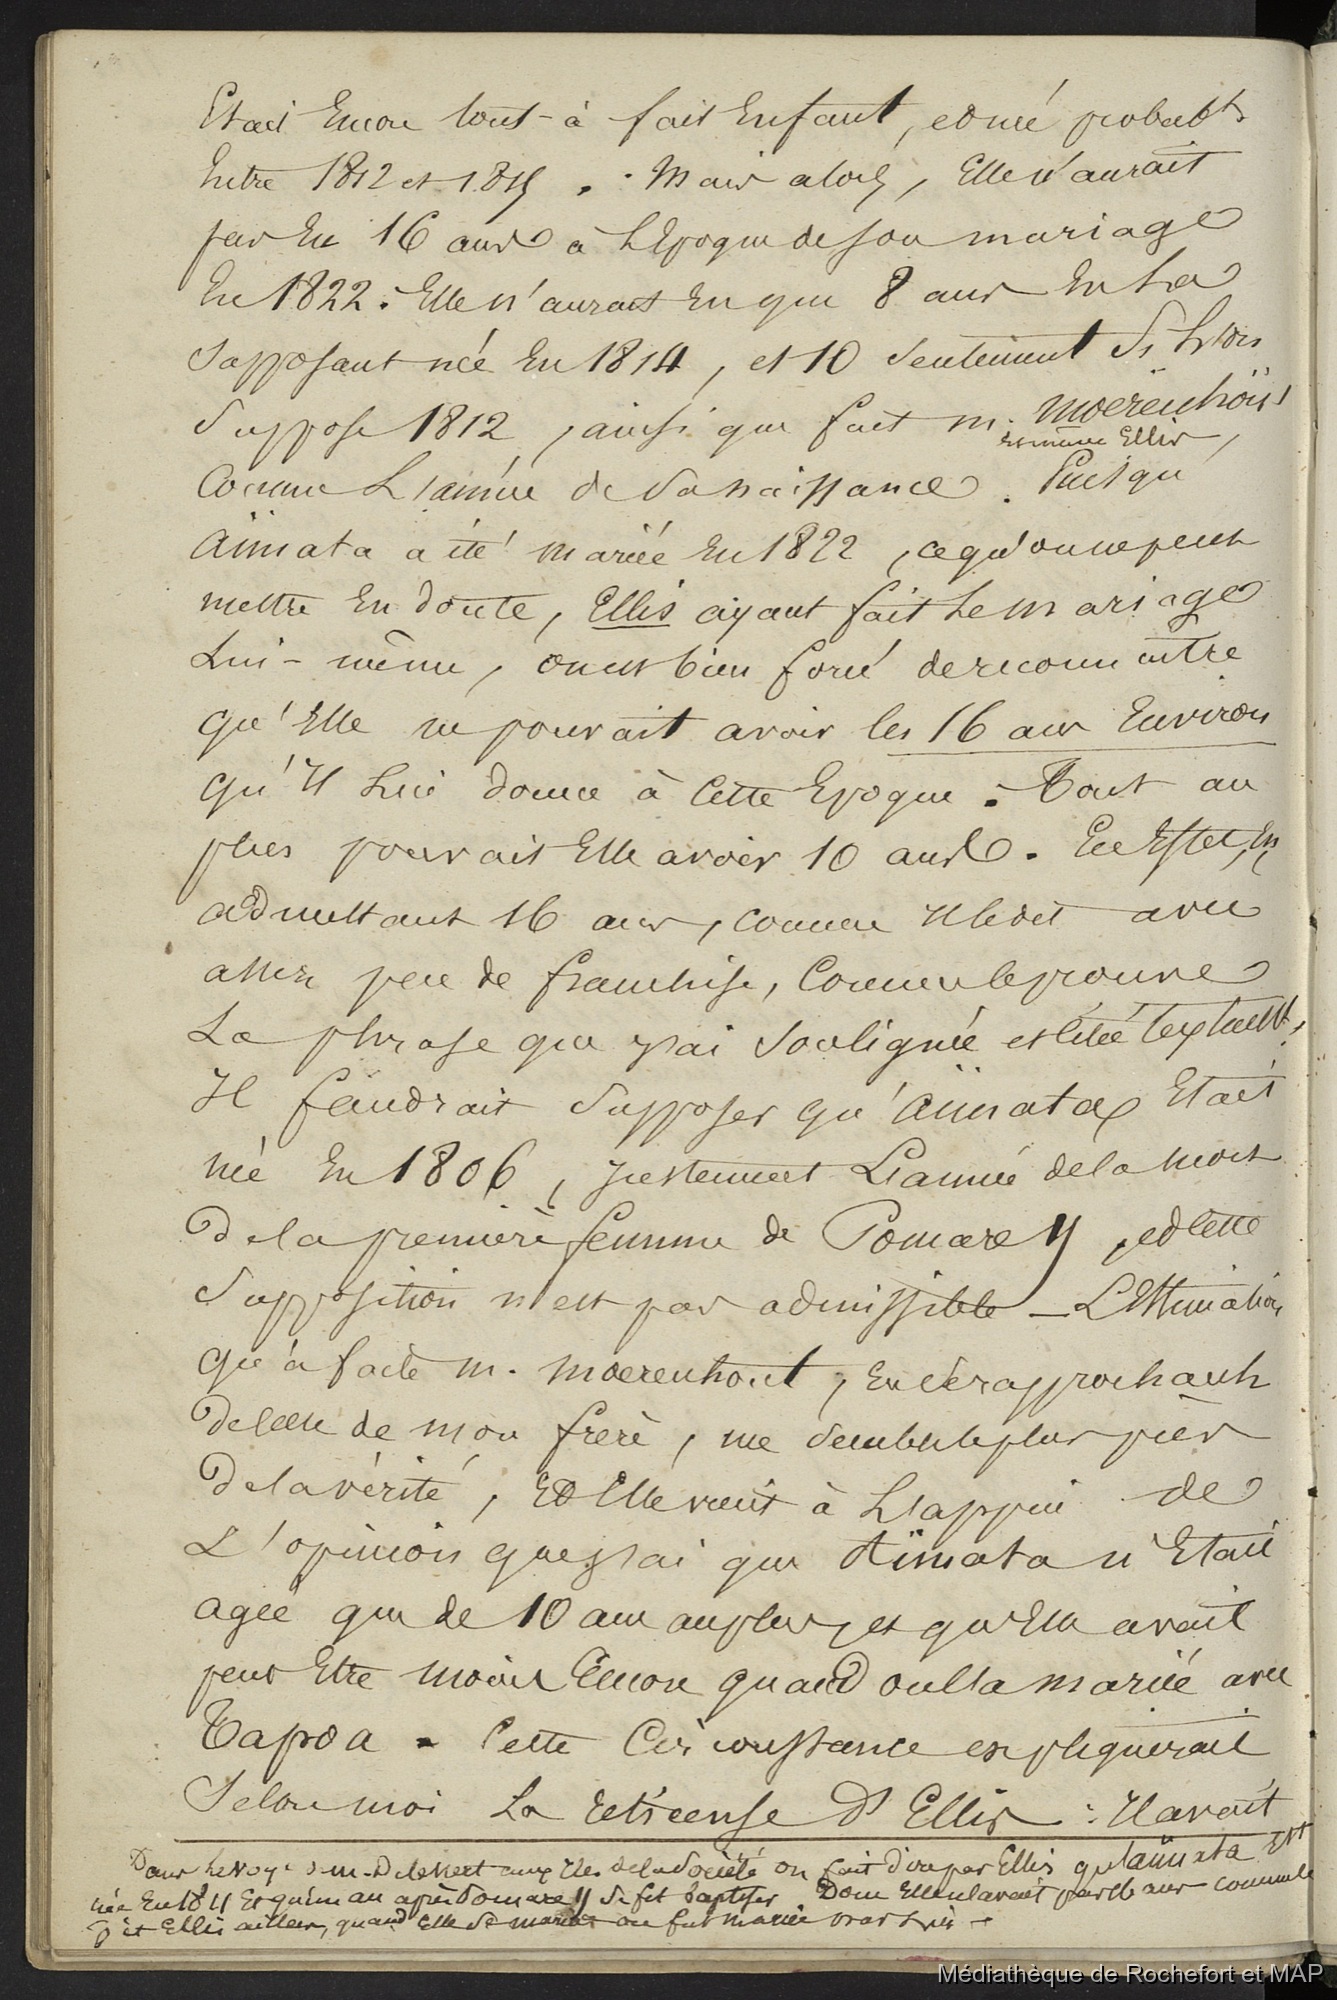 Etait Encore tout-à fait Enfant, et née probabt
Entre 1812 et 1814. Mais alors, Elle n'aurait
pas Eu 16 ans à L'Epoque de son mariage
En 1822. Elle n'aurait Eu que 8 ans En La
Supposant née En 1814, et 10 seulement Si L'on
Suppose 1812, ainsi que fait m. Moerenhout
et même Ellis,
Comme L'année de sa naissance. Puisqu'
Aïmata a été mariée En 1822, ce qu'on ne peut
mettre En doute, Ellis ayant fait Le mariage
Lui-même, on est bien forcé de reconnaitre
qu'Elle ne pouvait avoir les 16 ans Environ
qu'Il Lui donne à Cette Epoque. Tout au
plus pouvait Elle avoir 10 ans. En Effet, En
admettant 16 ans, comme Il le dit avec
assez peu de franchise, Comme le prouve
La phrase que j'ai soulignée et citée textuellt,
Il faudrait supposer qu'Aïmata Etait
née En 1806, justement L'année de la mort
De la première femme de Pomare II, et cette
Supposition n'est pas admissible — L'Estimation
qu'a faite m. Moerenhout, En se rapprochant
De celle de mon frère, me semble le plus près
De la vérité, Et Elle vient à L'appui de
L'opinion que j'ai que Aïmata n'Etait
agée que de 10 ans au plus, et qu'Elle avait
peut Etre moins Encore quand on l'a mariée avec
Tapoa. Cette Circonstance expliquerait
Selon moi La réticense d'Ellis : Il avait
Dans Le voye de m. Delessert aux Iles de la Société on fait dire par Ellis qu'Aïmata Est
née En 1811 Et qu'un an après Pomare II se fit baptiser Donc Elle n'avait pas 16 ans comme le
dit Ellis ailleurs, quand Elle se maria ou fut mariée
Médiathèque de Rochefort et MAP